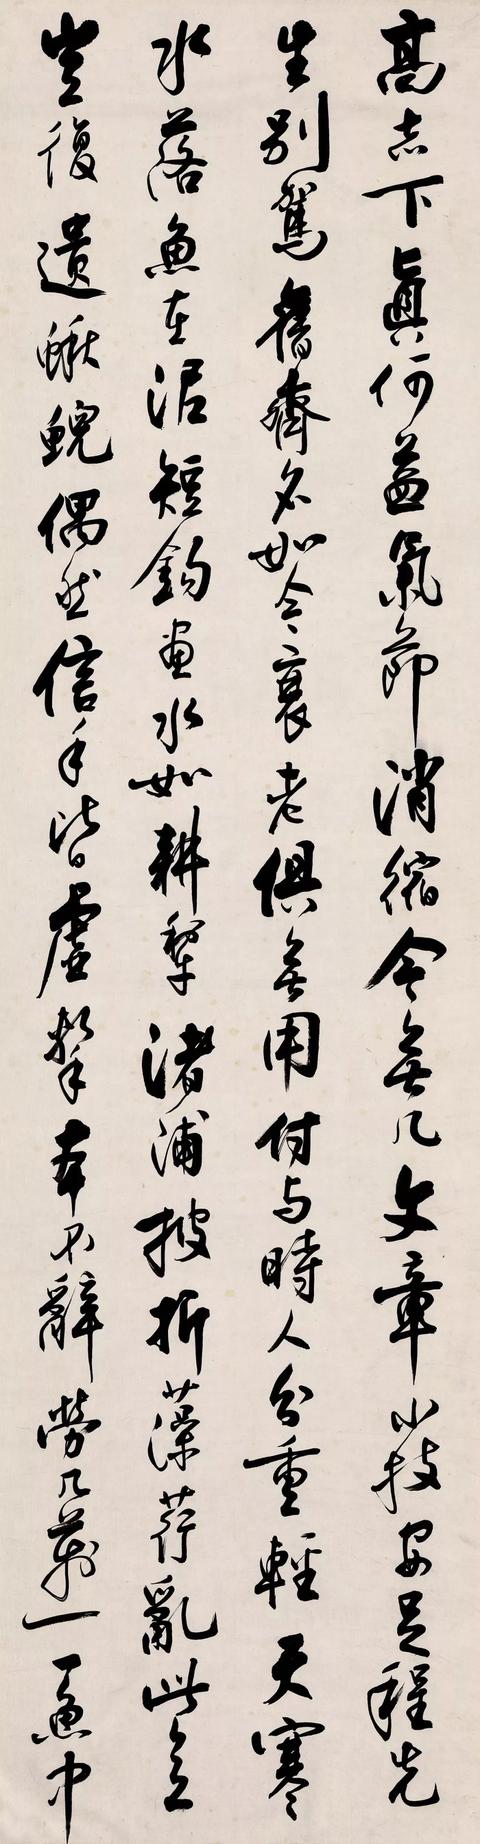 高志下真何益氣節消縮今無几文章小技安足程先
生別駕舊齊名如今衰老俱無用付与時人分重輕天寒
水落魚在泥短鈎畫水如耕犁渚浦披折藻荇亂此意
豈復遺鰍鯢偶然信手皆虛擊本不辭勞几萬一一魚中